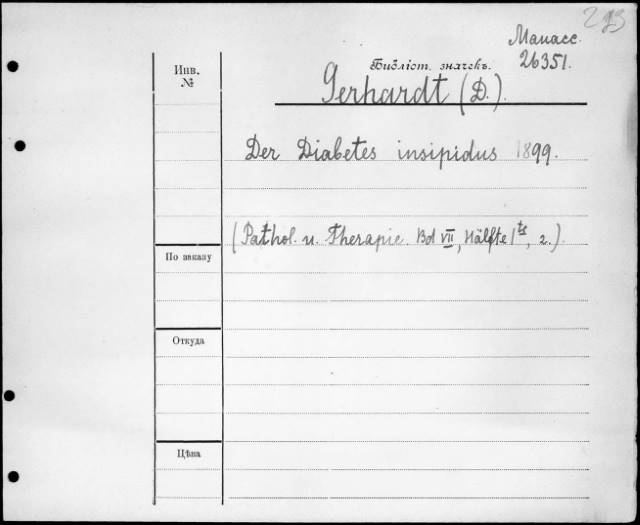 Манасс.
26351.
Библіот. значекъ.
Инв.
№
Gerhardt (D.).
Der Diabetes insipidus 1899.
(Pathol. u. Therapie. Bd VII, Hälfte 1te, 2.).
По заказу
Откуда
Цѣна